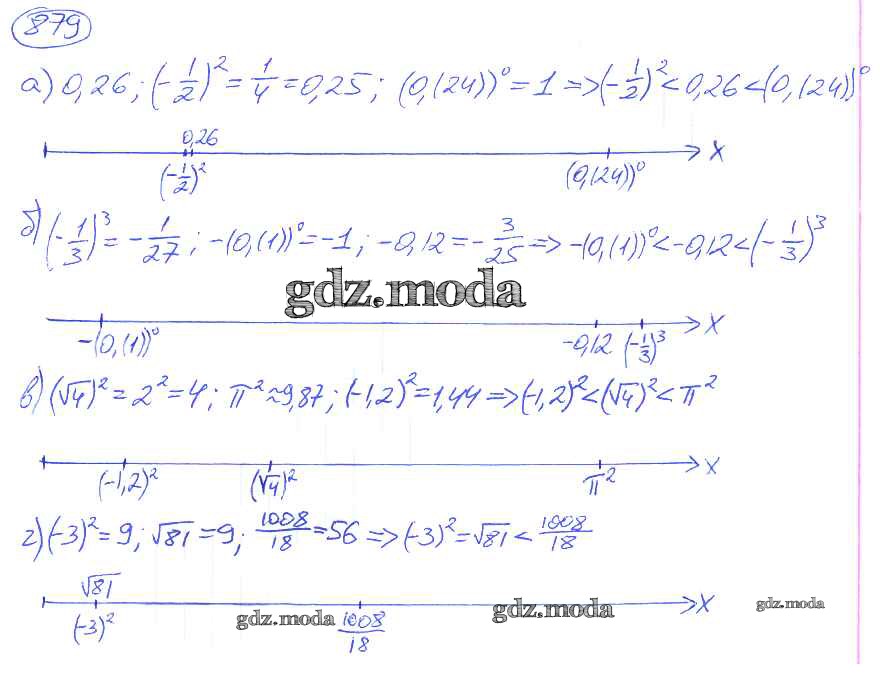 879
а) 0,26; (-1/2)² = 1/4 = 0,25; (0,(24))⁰ = 1 => (-1/2)² < 0,26 < (0,(24))⁰
0,26
(-1/2)² (0,(24))⁰ x
б) (-1/3)³ = -1/27; -(0,(1))⁰ = -1; -0,12 = -3/25 => -(0,(1))⁰ < -0,12 < (-1/3)³
gdz.moda
-(0,(1))⁰ -0,12 (-1/3)³ x
в) (√4)² = 2² = 4; π² ≈ 9,87; (-1,2)² = 1,44 => (-1,2)² < (√4)² < π²
(-1,2)² (√4)² π² x
г) (-3)² = 9; √81 = 9; 1008/18 = 56 => (-3)² = √81 < 1008/18
√81
(-3)² 1008/18 x
gdz.moda gdz.moda gdz.moda